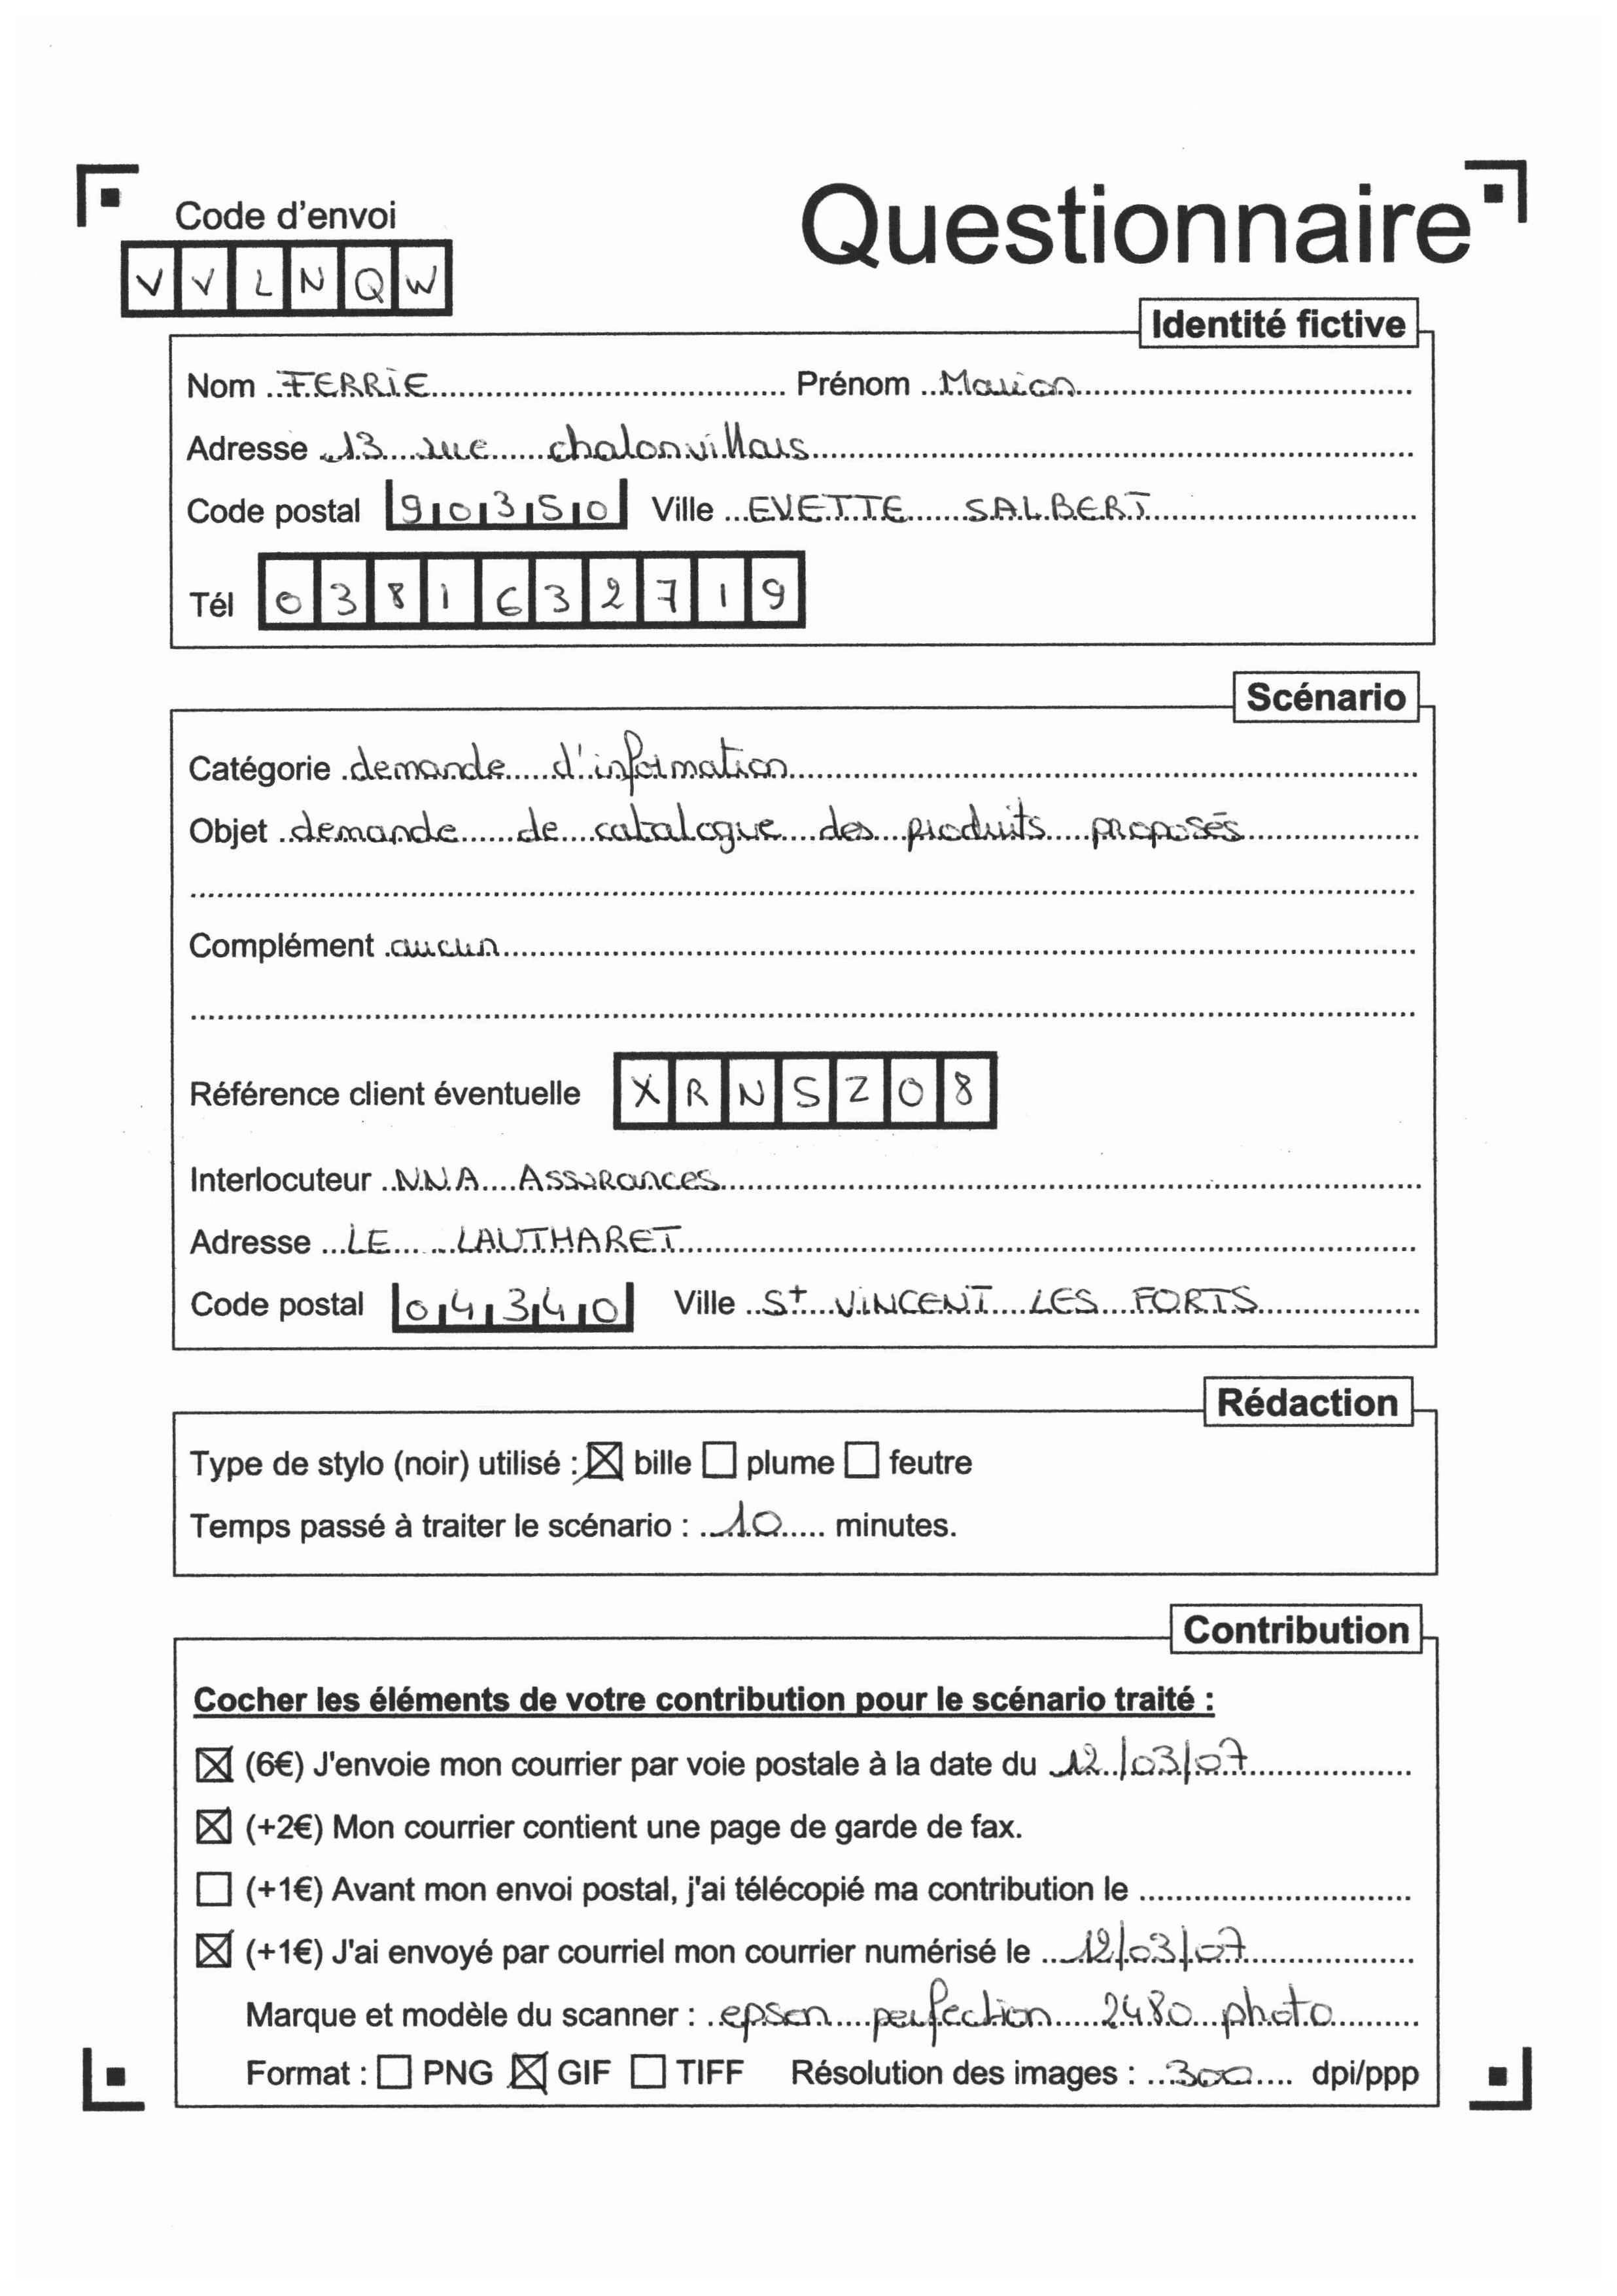 Code d'envoi
Questionnaire
V V L N Q W
Identité fictive
Nom FERRIE Prénom Marion
Adresse 13 rue chalonvillais
Code postal 90350 Ville EVETTE SALBERT
Tél 0381632719
Scénario
Catégorie demande d'information
Objet demande de catalogue des produits proposés
Complément aucun
Référence client éventuelle XRNSZ08
Interlocuteur NNA Assurances
Adresse LE LAUTHARET
Code postal 04340 Ville St VINCENT LES FORTS
Rédaction
Type de stylo (noir) utilisé : ☒ bille ☐ plume ☐ feutre
Temps passé à traiter le scénario : 10 minutes.
Contribution
Cocher les éléments de votre contribution pour le scénario traité :
☒ (6€) J'envoie mon courrier par voie postale à la date du 12/03/07
☒ (+2€) Mon courrier contient une page de garde de fax.
☐ (+1€) Avant mon envoi postal, j'ai télécopié ma contribution le
☒ (+1€) J'ai envoyé par courriel mon courrier numérisé le 12/03/07
Marque et modèle du scanner : epson perfection 2480 photo
Format : ☐ PNG ☒ GIF ☐ TIFF Résolution des images : 300 dpi/ppp